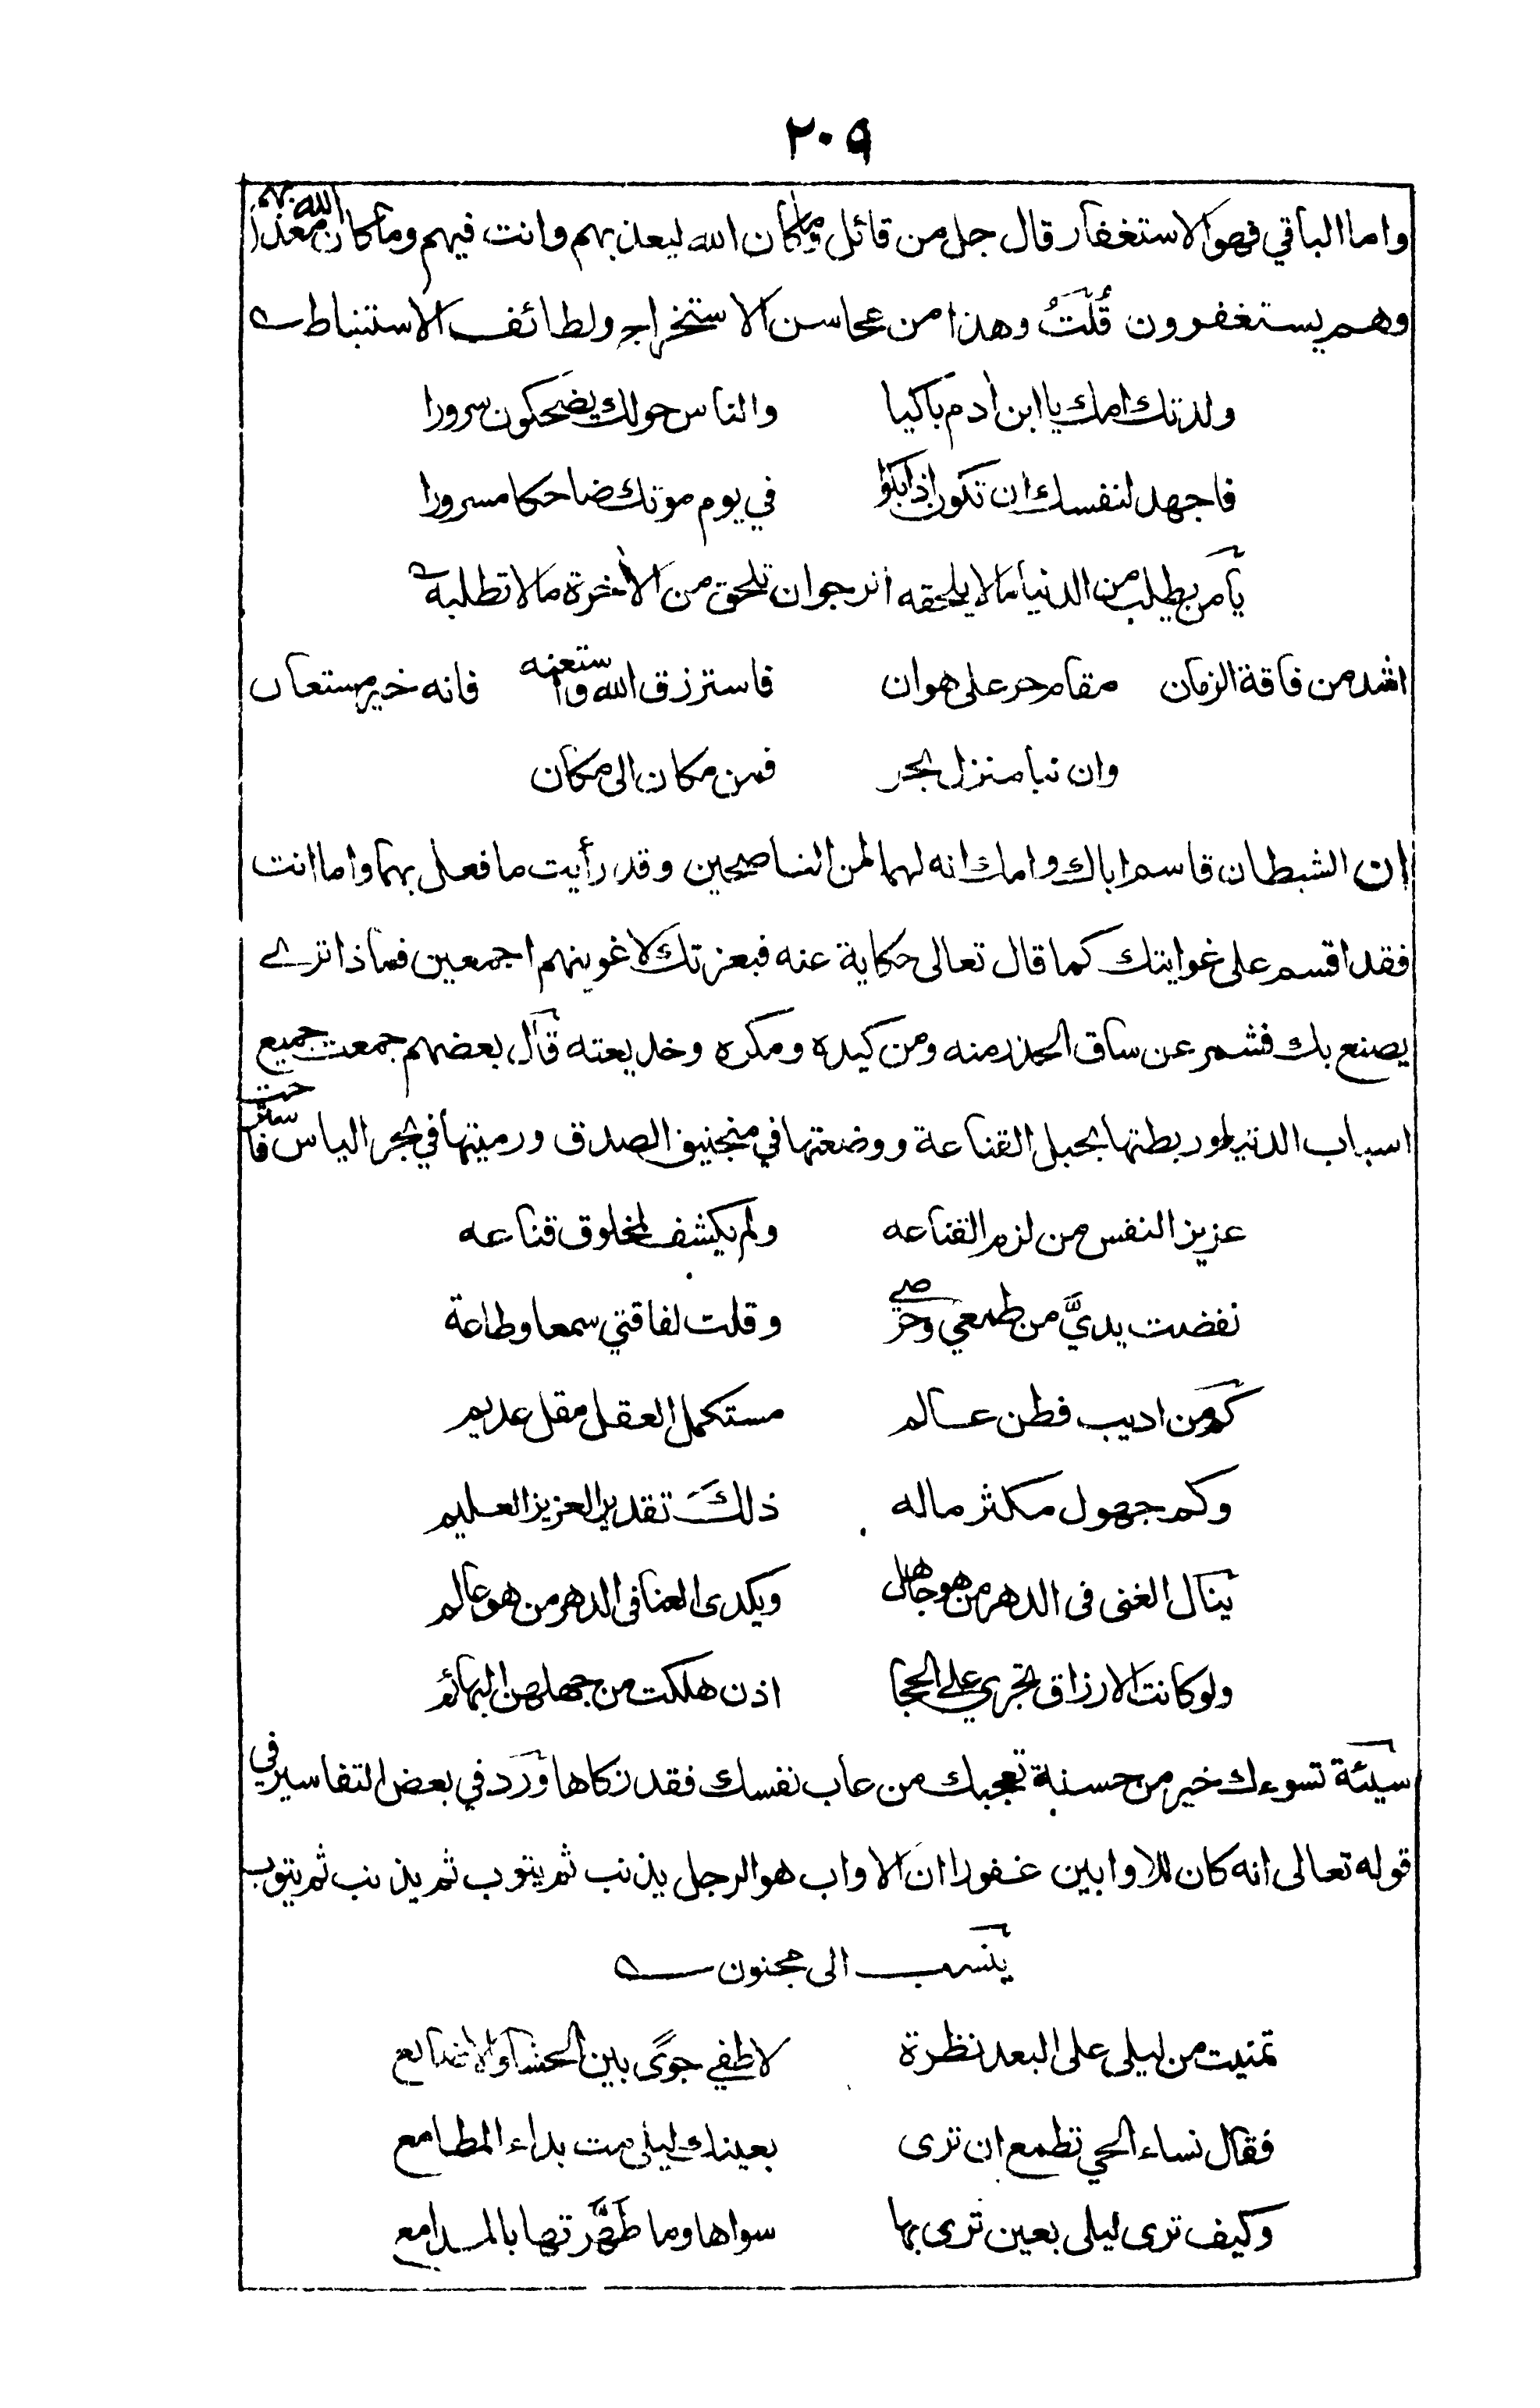 ٢٠٩
واما الباقي فهو الاستغفار قال جل من قائل وما كان الله ليعذبهم وانت فيهم وما كان الله معذبهم
وهم يستغفرون قلت وهذا من محاسن الاستخراج ولطائف الاستنباط
ولدتك امك يا ابن أدم باكيا والناس حولك يضحكون سرورا
فاجهد لنفسك ان تكون اذا بكوا في يوم موتك ضاحكا مسرورا
يا من يطلب من الدنيا مالا يلحقه اترجوان تلحق من الأخرة مالا تطلبه
اشد من فاقة الزمان مقام حر على هوان فاسترزق الله واستعنه فانه خير مستعان
وان نبا منزل بحر فمن مكان الى مكان
ان الشيطان قاسم اباك وامك انه لهما لمن الناصحين وقد رأيت ما فعل بهما واما انت
فقد اقسم على غوايتك كما قال تعالى حكاية عنه فبعزتك لاغوينهم اجمعين فماذا ترى
يصنع بك فشمر عن ساق الحذر منه ومن كيده ومكره وخديعته قال بعضهم جمعت جميع
اسباب الدنيا وربطتها بحبل القناعة ووضعتها في منجنيق الصدق ورميتها في بحر الياس فاسترحت
عزيز النفس من لزم القناعه ولم يكشف لمخلوق قناعه
نفضت يديَّ من طمعي وحرصي وقلت لفاقتي سمعا وطاعة
كم من اديب فطن عالم مستكمل العقل مقل عديم
وكم جهول مكثر ماله ذلك تقدير العزيز العليم
ينال الغنى فى الدهر من هو جاهل ويكدى العنا فى الدهر من هو عالم
ولو كانت الارزاق تجري على الحجا اذن هلكت من جهلهن البهائم
سيئة تسوءك خير من حسنة تعجبك من عاب نفسك فقد زكاها ورد في بعض التفاسير في
قوله تعالى انه كان للاوابين غفورا ان الاواب هو الرجل يذنب ثم يتوب ثم يذنب ثم يتوب
ينسب الى مجنون
تمنيت من ليلى على البعد نظرة لاطفي جوًى بين الحشا والاضالع
فقال نساء الحي تطمع ان ترى بعينك ليلى مت بداء المطامع
وكيف ترى ليلى بعين ترى بها سواها وما طهَّرتها بالمدامع